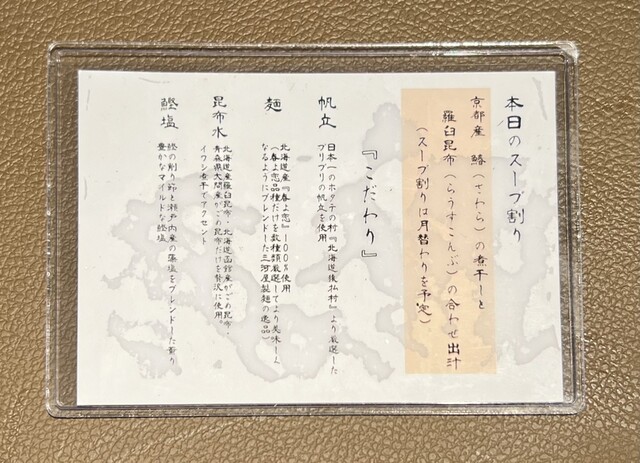 本日のスープ割り
京都産　鰆（さわら）の煮干しと
羅臼昆布（らうすこんぶ）の合わせ出汁
（スープ割りは月替わりを予定）
『こだわり』
帆立
日本一のホタテの村『北海道猿払村』より厳選した
プリプリの帆立を使用
麺
北海道産『春よ恋』１００％使用
（春よ恋品種だけを数種類厳選してより美味しく
なるようにブレンドした三河屋製麺の逸品）
昆布水
北海道産羅臼昆布、北海道函館産がごめ昆布、
青森県大間産がごめ昆布だけを贅沢に使用。
イワシ煮干でアクセント
鰹塩
鰹の削り節と瀬戸内産の藻塩をブレンドした香り
豊かなマイルドな鰹塩